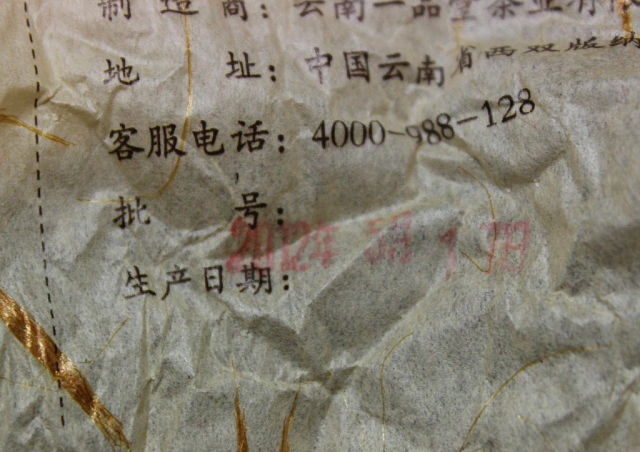 制造商：云南一品堂茶业有限
地址：中国云南省西双版纳
客服电话：4000-988-128
批号：
2012年 5月 17日
生产日期：